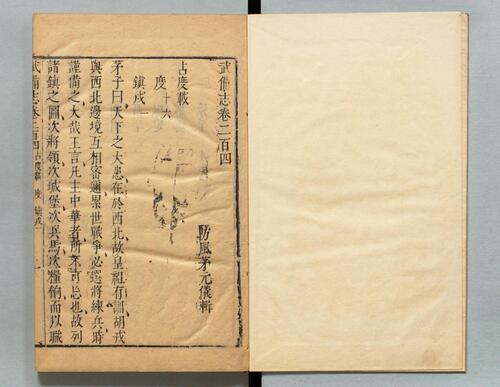 武備志卷二百四
防風茅元儀輯
占度載
度十六
鎮戍一
茅子曰天下之大患在於西北故皇祖有訓胡戎
與西北邊境互相密邇累世戰爭必選將練兵時
謹備之大哉王言凡主中華者所不可忘也故列
諸鎮之圖次將領次城堡次兵馬次糧餉而以職
武備志卷二百四 占度載 度 鎮戍一 一